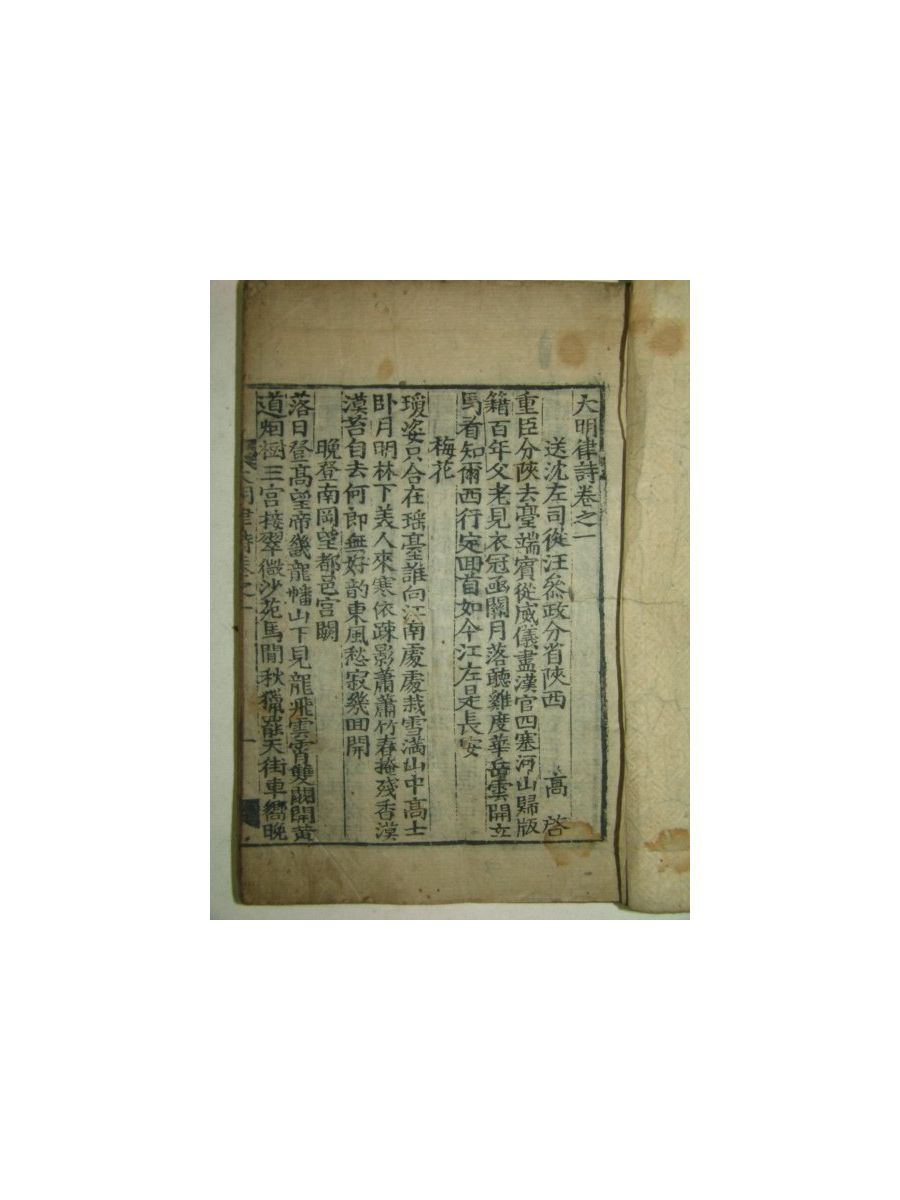 大明律詩卷之一
送沈左司從汪叅政分省陜西 高啓
重臣分陜去臺端賓從威儀盡漢官四塞河山歸版
籍百年父老見衣冠函關月落聽雞度華岳雲開立
馬看知爾西行定回首如今江左是長安
梅花
瓊姿只合在瑤臺誰向江南處處栽雪滿山中高士
卧月明林下美人來寒依疎影蕭蕭竹春掩殘香漠
漠苔自去何郎無好韵東風愁寂幾回開
晚登南岡望都邑宮闕
落日登高望帝畿龍蟠山下見龍飛雲霄雙闕開黃
道烟樹三宮接翠微沙苑馬閒秋獵罷天街車嚮晚